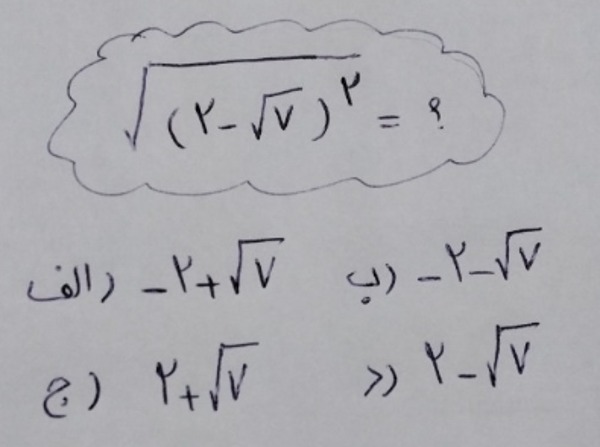 √(۲-√۷)^۲ = ؟
الف) -۲+√۷ ب) -۲-√۷
ج) ۲+√۷ د) ۲-√۷